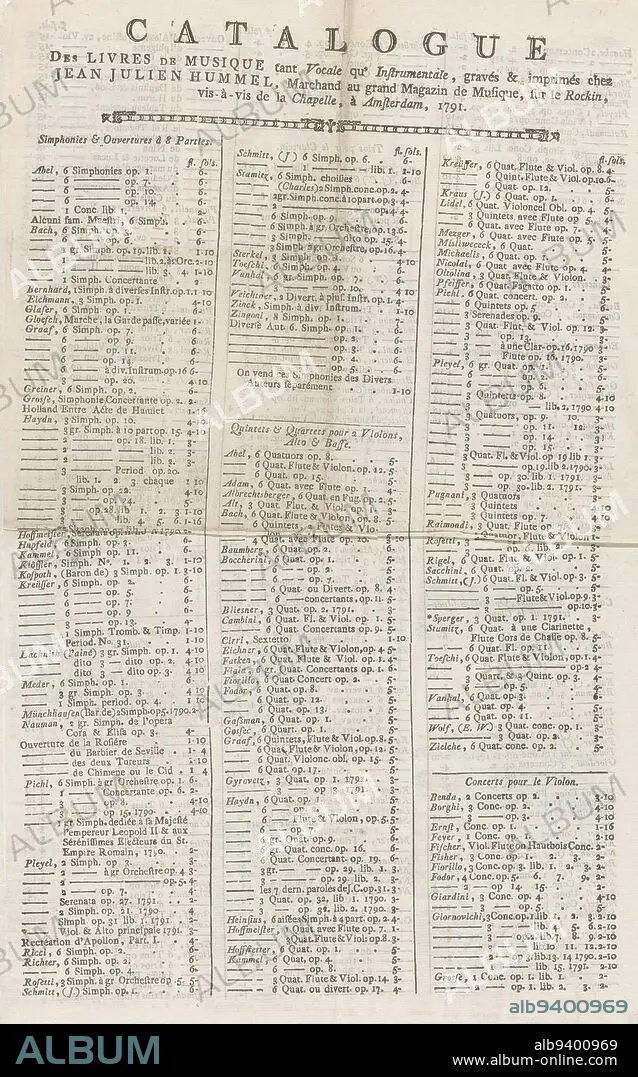 CATALOGUE
DES LIVRES DE MUSIQUE tant Vocale qu' Instrumentale, gravés & imprimés chez
JEAN JULIEN HUMMEL, Marchand au grand Magazin de Musique, sur le Rockin,
vis-à-vis de la Chapelle, à Amsterdam, 1791.
Simphonies & Ouvertures à 8 Parties.
fl. sols.
Abel, 6 Simphonies op. 1. 6-
6 op. 7. 6-
6 op. 10. 6-
6 op. 14. 6-
1 Conc. lib
Alcuni fam. Maestri, 6 Simph. 6-
Bach, 6 Simph.
6 op. 6. 6-
3 gr. Simph. op. 19. lib. 1. 1-10
lib. 2. à 2 Orc. 2-10
lib. 3. 4. 1-10
1 Simph. Concertante
Bernhard, 1 Simph. à diverses Instr. op. 1. 1-10
Eichmann, 3 Simph. op. 1. 4-10
Glaser, 6 Simph. op. 1. 6-
Gloesch, Marche, la Garde passe, variée 1-
Graaf, 6 Simph. op. 7. 6-
6 op. 9. 6-
6 op. 11. 6-
6 op. 14 6-
6 à div. Instrum. op. 16 6-
3 op. 20. 4-10
Greiner, 6 Simph. op. 2. 6-
Grosse, Simphonie Concertante op. 2. 2-
Holland Entre Acte de Hamlet 1-16
Haydn, 3 Simph. op. 10. 4-10
3 gr. Simph. à 10 part. op. 15. 4-10
op. 18. lib. 1. 3-
lib. 2. 3-
lib. 3. 3-
3 Period op. 20.
lib. 1. 2. 3 chaque 1-10
3 Simph. op. 22. 4-10
3
3 op. 28. 1. 2. 3 1-10
lib. 4. 5. 6. 1-16
Hoffmeister,
Hupfeld, 6 Simph. op. 3. 6-
Kammel, 6 Simph. op. 11. 6-
Klöffler, Simph. No. 1. 2. 3. 1-10
Kospoth, (Baron de) 3 Simph. op. 1. 3-10
Kreüsser, 6 Simph. op. 2. 6-
6 op. 5. 6-
6 op. 7. 6-
6 op. 9. 6-
3 op. 13. 4-
1 Simph. Tromb. & Timp. 1-10
Period. No. 31. 1-10
Lachnith (l'ainé) 3 gr. Simph. op. 1. 4-10
dito 3 dito op. 2. 4-10
dito 3 dito op. 3. 4-10
Meder, 6 Simph. op. 1. 6-
3 gr. Simph. op. 3. 4-10
1 Simph. period. op. 4. 1-10
Münchhausen (Bar. de) 2 Simph. op. 5. 1790. 2-
Nauman, 2 gr. Simph. de l'opera
Cora & Elisa op. 3. 4-
Ouverture de la Rosière 1-10
du Barbier de Seville 1-4
des deux Tuteurs 1-10
de Chimene ou le Cid 1 4
Pichl, 6 Simph. à gr Orchestre op. 1. 6-
1 Concertante op. 6. 2-
3 op. 8. 4-10
3 op. 15, 1790. 4-10
1 gr Simph. dediée à sa Majesté
l'empereur Leopold II & aux
Sérénissimes Electeurs du St.
Empire Romain, 1790. 2-
Pleyel, 2 Simph. op. 3. 4-
2 à gr Orchestre op. 4 3-
2 op. 5. 4-
2 op. 7.
Serenata op. 27. 1791. 2-
2 Simph. op. 21. 1790. 4-
Simph. op. 31 lib. 1. 1791 2-
Viol. & Alto principale 1791. 3-
Recréation d'Apollon, Part. I. 4-
Ricci, 6 Simph. op. 2. 6-
Richter, 6 Simph. op. 2. 6-
6 Simph. op. 4. 6-
Rosetti, 3 Simph. à gr Orchestre op. 5. 5-
Schmitt, (J.) Simph. op. 1. 6-
fl. sols.
Schmitt, (J) 6 Simph. op. 6. 6-
1 lib. 1. 2-10
Stamitz, 6 Simph. choisies 6-
(Charles) 2 Simph. conc. op. 2. 4-
2 gr. Simph. conc. à 10 part. op. 3 4-
2 op. 4 4-
6 Simph. op. 9. 6-
6 Simph. à gr Orchestre, op. 13. 6-
3 Simph. dito op. 15. 4-
3 Simph. à gr Orchestre, op. 16. 4-
Sterkel, 3 Simph. op.
Toeschi, 6 Simph. op. 4. 6-
Vanhal, 6 gr. Simph. op. 7. 6-
op. 10.
Veichtner, 2 Divert. à plus. Instr. op. 1. 4-
Zinck, Simph. à div. Instrum.
Zingoni, 8 Simph. op. 1. 7-
Diverse Aut. 6. Simph. op. 1. 6-
op. 2. 6-
op. 3. 6-
op. 4. 6-
op. 5. 6-
On vend ces Simphonies des Divers
Auteurs séparément 1-10
Quintets & Quartets pour 2 Violons,
Alto & Basse.
Abel, 6 Quatuors op. 8. 5-
6 Quat. Flute & Violon. op. 12. 5-
6 Quat. op. 15. 5-
Adam, 6 Quat. avec Flute op. 1. 4-
Albrechtsberger, 6 Quat. en Fug. op. 2. 5-
Alt, 3 Quat. Flut. & Viol. op. 1. 3-
Bach, 6 Quat. Flute & Viol. op. 8. 5-
6 Quintets, Flute & Vio-
4 Quat. avec Flute op. 20. 3-10
Baumberg, 6 Quat. op. 2. 6-
Boccherini, 6 Quat. op. 1. 5-
6 op. 2. 5-
6 op. 7. 5-
6 Quat. ou Divert. op. 8. 4-
6 concertants, op. 11. 5-
Bliesner, 3 Quat. op. 2. 1791. 3-
Cambini, 6 Quat. Fl. & Viol. op. 1. 5-
6 Quat. Concertants op. 9. 5-
Cirri, Sextetto 1-10
Eichner, 6 Quat. Flute & Violon, op. 4 5-
Fatken, 6 Quat. Flute & Viol. op. 1. 4-
Fiala, 6 gr. Quat. Concertants op. 1. 6-
Fiorillo, 6 Quat. Concert op. 2. 5-
Fodor, 6 Quat. op. 8. 5-
6 Quat. op. 12. 5-
6 Quat. op. 13. 5-
Gasman, 6 Quat. op. 1. 5-
Gossec, 6 Quart. op. 1. 5-
Graaf, 6 Quintets, Flute & Viol. op. 8. 5-
6 Quat, Flute & Violon, op. 12. 5-
6 Quat. Violonc. obl. op. 15. 5-
6 Quat. op. 17. 5-
Gyrovetz, 3 Quat. op. 1. 1791. 3-
3 op. 3. 1791. 3-
Haydn, 6 Quat. op. 1. 5-
6 Flute & Violon, op. 5. 5-
6 op. 7.
6 Quat. op. 9. 5-
6 Quat. conc. op. 16. 6-
6 Quat. Concertant. op. 19. 6-
3 gr. op. 29. lib. 1. 3-
3 op. 29. lib. 2. 3-
les 7 dern. paroles de J. C. op. 31. 3-
3 Quat. op. 32. lib. 1. 1790. 3-
3 op. 32. lib. 2. 1790. 3-
Heinsius, 6 aisées Simph. à 4 part. op. 2. 4-
Hoffmeister, 6 Quat. avec Flute op. 7. 1-
3 Quat. Flute & Viol. op. 8. 3-
Hoffstetter, 6 Quat. op. 1. 5-
Kammel, 6 Quat. op. 4. 5-
6 op. 8. 5-
3 Quat. Flute & Viol. op. 14. 3-
6 Quat. ou divert. op. 17. 4-
fl. sols.
Kreüsser, 6 Quat. Flute & Viol. op. 8. 4-
6 Quint. Flute & Viol. op. 10. 6-
6 Quat. op. 12. 5-
Kraus (J.) 6 Quat. op. 1. 6-
Lidel, 6 Quat. Violoncel Obl. op. 4. 5-
3 Quintets avec Flute op. 5 4-
6 Quat. avec Flute op. 7. 4-
Mezger, 6 Quat. avec Flute op. 5. 5-
Misliwececk, 6 Quat. 5-
Michaelis, 6 Quat. op. 1. 5-
Nicolai, 6 Quat. avec Flute op. 4. 4-
Ottolina, 3 Quat. Flute & Violon. 3-
Pfeiffer, 6 Quat. Fagotto op. 1. 5-
Pichl, 6 Quat. concert. op. 2. 5-
6 Quintets op. 5. 6-
3 Serenades op. 9. 3-
3 Quat. Flut. & Viol. op. 12. 3-
3 op. 13. 3-
3 à une Clar. op. 16. 1790 3-
3 Flute op. 16. 1790. 3-
Pleyel, 6 gr. Quat. op. 1. 6-
6 op. 2. 6-
6 op. 6. 6-
3 Quintets op. 8. 4-10
3 lib. 2. 1790 4-10
3 Quatuors, op. 9. 10 3-
3 op. 11. 3-
3 op. 14. 3-
3 op. 15. 3-
3 Quat. Fl. & Viol. op. 19 lib 1 3-
3 op. 19. lib. 2. 1790. 3-
3 op. 30. lib. 1. 1791. 3-
3 op. 30. lib. 2. 1791. 3-
Pugnani, 3 Quatuors 3-
6 Quintets 5-
6 Quintets op. 7. 4-10
Raimondi, 3 Quat. Flute op. 4-
Quatuor, Flute & Violon 1-
Rosetti, 3 op. 6. lib. 2. 3-
Rigel, 6 Quat. Flut. & Viol. op. 1. 5-
Sacchini, 6 Quat. op. 2. 5-
Schmitt, (J.) 6 Quat. Fl. & Viol. op. 3. 5-
6 op. 5. 5-
3 Flute & Viol. op. 9. 3-
3 op. 10. 3-
*Sperger, 3 Quat. op. 1. 1791. 3-
Stamitz, 6 Quat. à une Clarinette,
Flute Cors de Chasse op. 8. 5-
6 Quat. Fl. op. 11. 5-
Toeschi, 6 Quat. Flute & Violon, op. 1. 4-
6 op. 2 4-
3 Quart. & 3 Quint. op. 3. 4-
6 op. 5. 4-
Vanhal, 6 Quat. op. 3. 6-
6 op. 4. 6-
Wolf, (E. W.) 3 Quat. conc. op. 1. 3-
3 Quat. op. 2. 3-
Zielche, 6 Quat. conc. op. 2. 5-
Concerts pour le Violon.
Benda, 2 Concerts op. 2. 3-10
Borghi, 3 Conc. op. 2. 4-10
3 op. 3. 4-10
Ernst, Conc. op. 1. 1-16
Feyer, 1 Conc. op. 1. 2-
Fischer, Viol. Flute ou Hautbois Conc. 2-
Fisher, 3 Conc. op. 1. 2. 3. 2-
Fiorillo, 3 Conc. lib. 1. 2. 3. 2-
Fodor, 4 Conc. op. 5. 6. 7. 9. 2-
2 op. 14. 15. 2-
Giardini, 3 Conc. op. 4. 4-10
3 op. 5. 5-
Giornovichi, 3 Conc. op. 1. lib. 1. 2. 3. 2-10
3 op. 2. lib. 7. 8. 9. 2-10
lib. 10. 11. 12. 2-10
op. 3. lib. 13. 14 1790. 2-10
lib. 15. 1791. 2-10
Grosse, 1 Conc. op. 1. lib. 1. 2-
1 Conc. op. 1. lib. 2. 2-
ALBUM
alb9400969
ALBUM
alb9400969
www.album-online.com